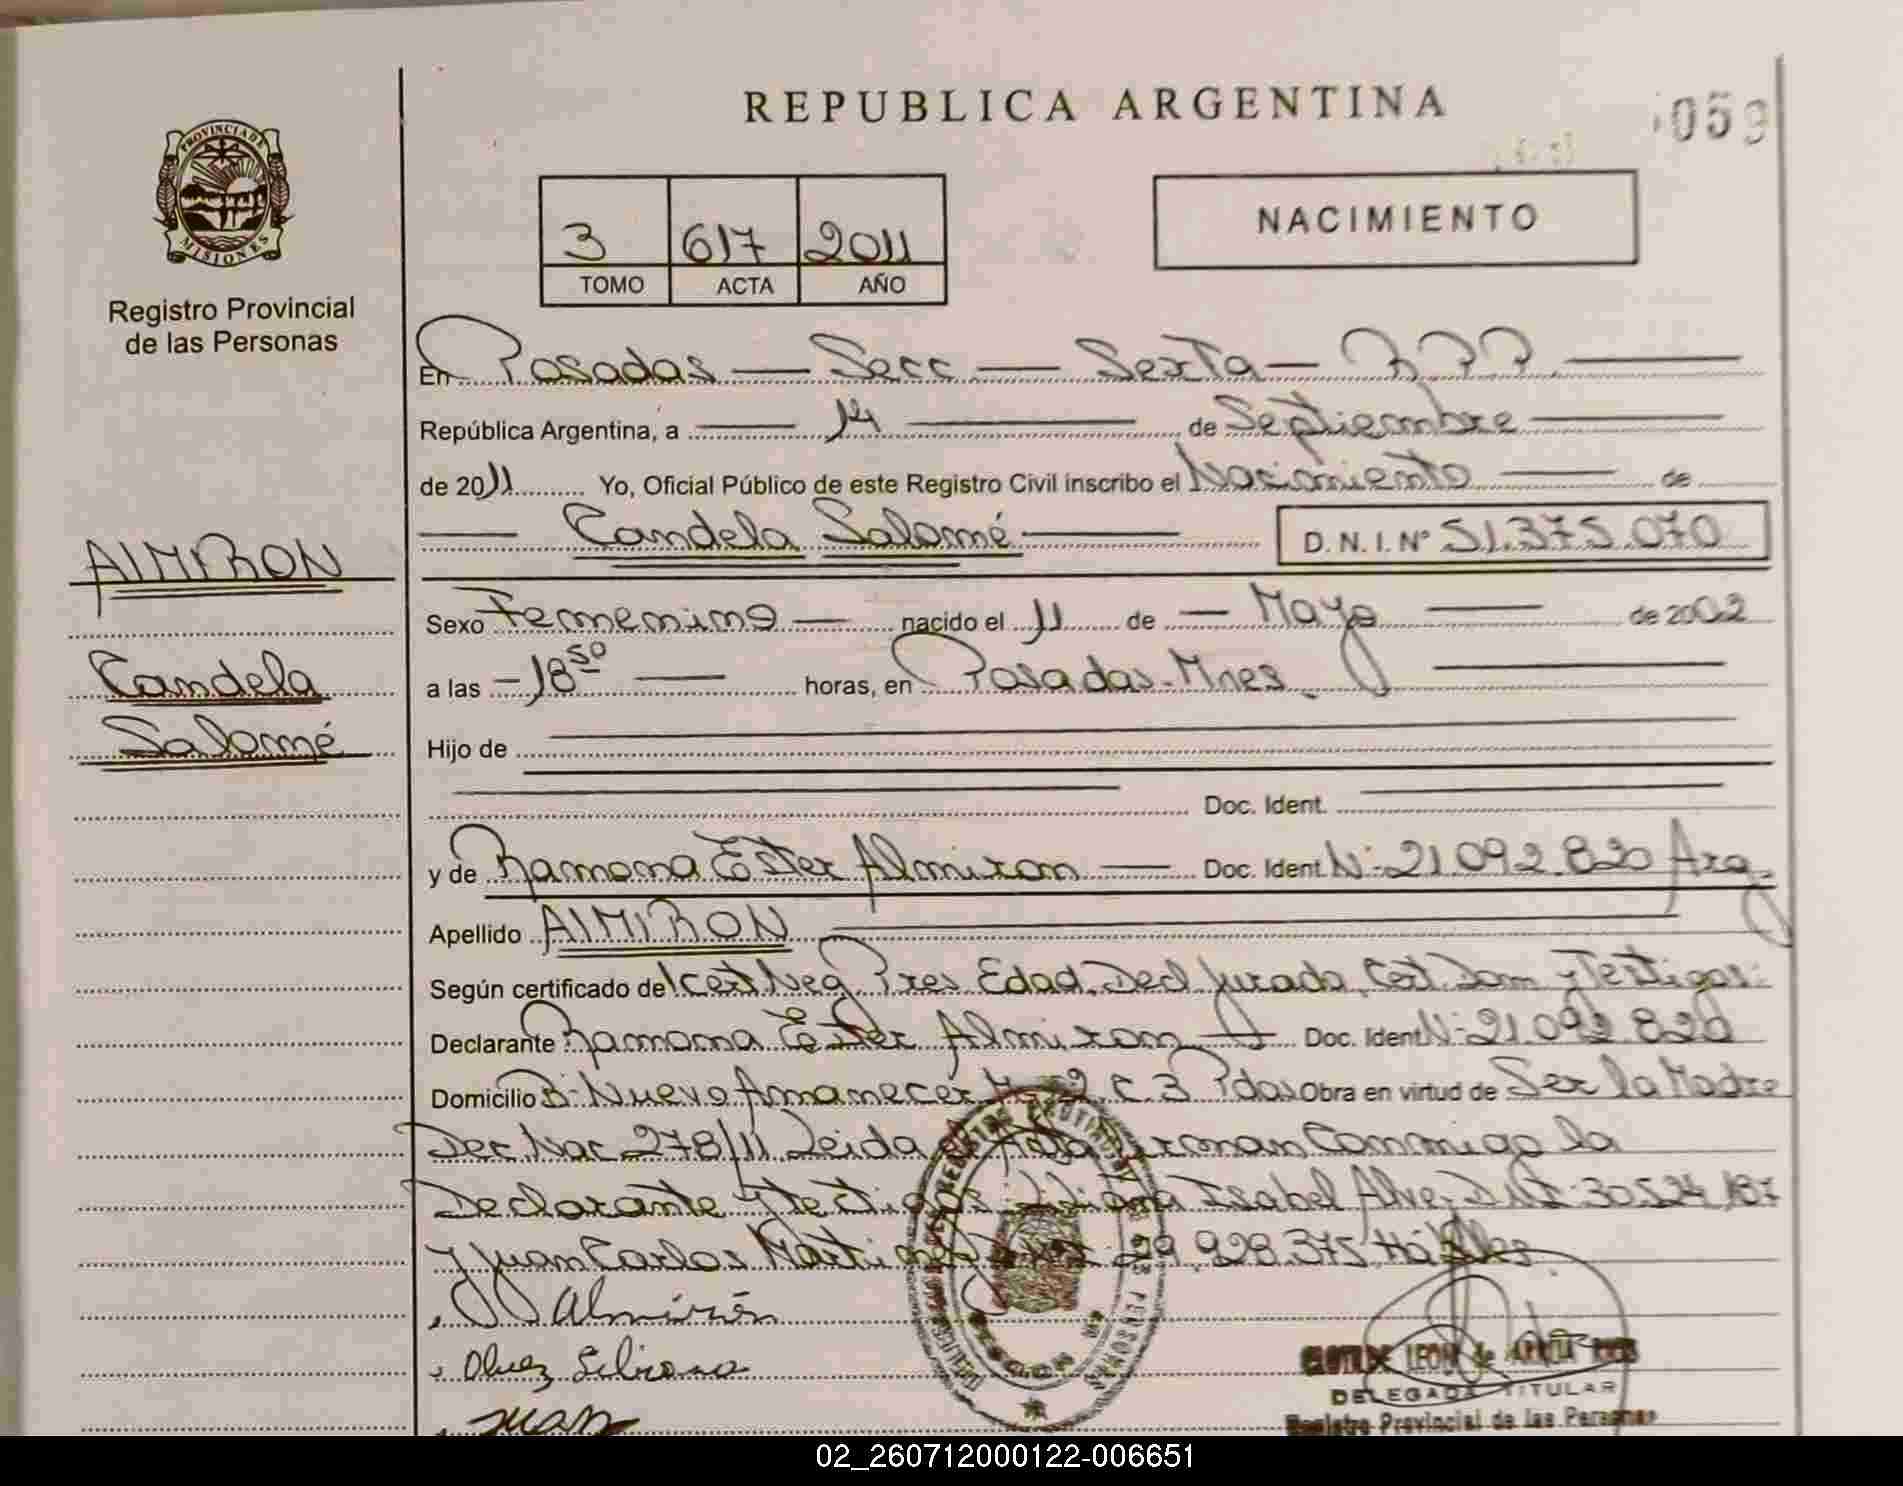 REPUBLICA ARGENTINA
059
PROVINCIA DE
MISIONES
Registro Provincial
de las Personas
3 617 2011
TOMO ACTA AÑO
NACIMIENTO
En Posadas — Secc — Sexta — R P P.
República Argentina, a — 14 — de Septiembre
de 2011 Yo, Oficial Público de este Registro Civil inscribo el Nacimiento — de
— Candela Salomé — D. N. I. N° 51.375.070
AlMIRON
Candela
Salomé
Sexo Femenino — nacido el 11 de — Mayo — de 2002
a las - 18 50 — horas, en Posadas - Mnes.
Hijo de
Doc. Ident.
y de Ramona Ester Almiron — Doc. Ident. N- 21.092.820 Arg.
Apellido AlMIRON
Según certificado de Cert Neg. Pres Edad, Decl Jurada, Cert. Dom y Testigos:
Declarante Ramona Ester Almiron — Doc. Ident. N- 21.092.820
Domicilio B- Nuevo Amanecer C. 3 Pdas Obra en virtud de Ser la Madre
Dec Nac 278/11 Leida el Acta Firman Conmigo la
Declarante y testigos: Liliana Isabel Alvez D.N.I. 30.524.187
y Juan Carlos Martinez 29.928.375
Almirón
Alvez Liliana
Juan
CLOTILDE LEON de
DELEGADA TITULAR
Registro Provincial de las Personas
02_260712000122-006651